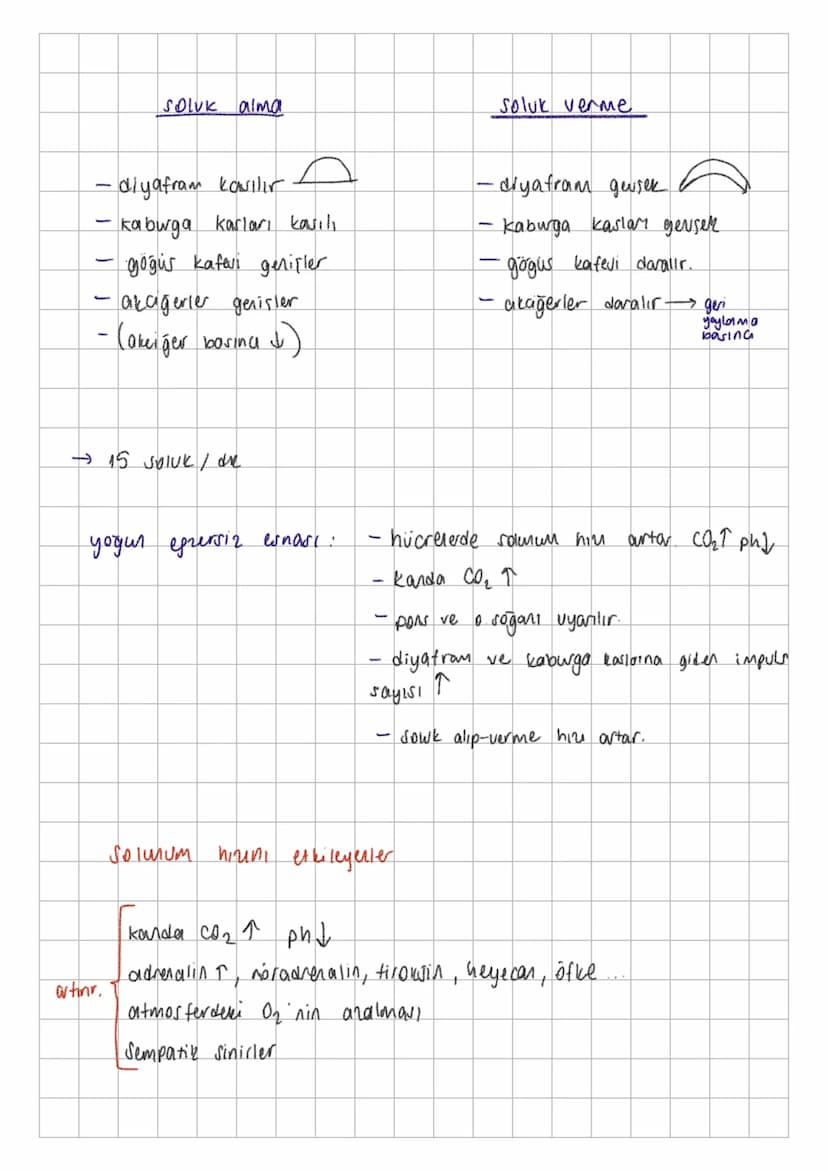 soluk alma
- diyafram kasılır
- kaburga kasları kasılı
- göğüs kafesi genişler
- akciğerler genişler
- (akciğer basıncı ↓)
soluk verme
- diyafram gevşek
- kaburga kasları gevşek
- göğüs kafesi daralır.
- akciğerler daralır → geri
yaylanma
basıncı
→ 15 soluk / dk
yoğun egzersiz esnası :
- hücrelerde solunum hızı artar. CO₂↑ ph↓
- kanda CO₂ ↑
- pons ve o soğanı uyarılır.
- diyafram ve kaburga kaslarına giden impuls
sayısı ↑
- soluk alıp-verme hızı artar.
solunum hızını etkileyenler
artırır.
kanda CO₂ ↑ ph↓
adrenalin ↑, nöradrenalin, tiroksin, heyecan, öfke ...
atmosferdeki O₂'nin azalması
Sempatik sinirler